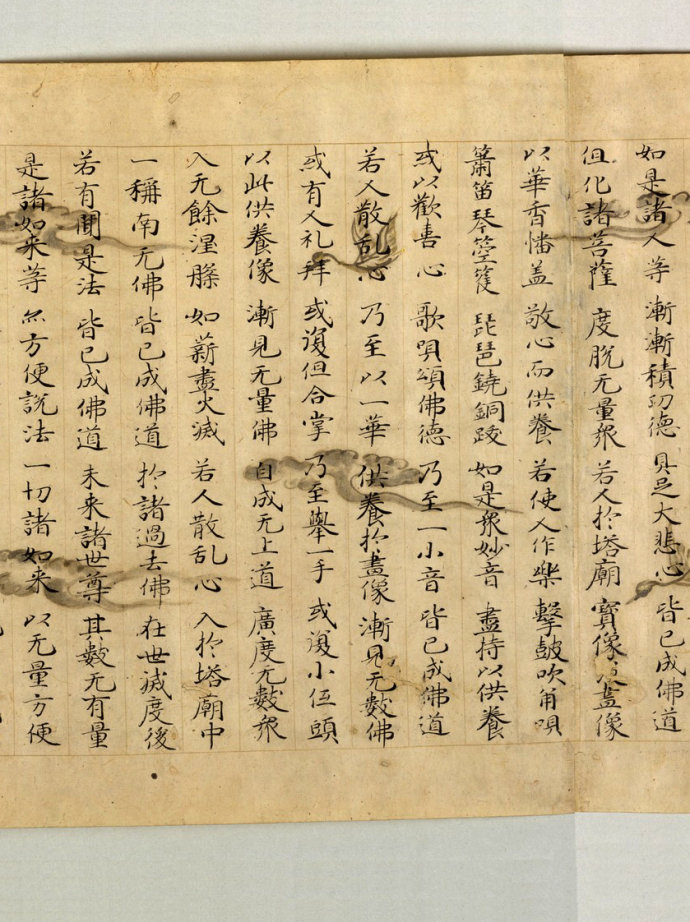 如是諸人等 漸漸積功德 具足大悲心 皆已成佛道
但化諸菩薩 度脫无量衆 若人於塔廟 寳像及畫像
以華香幡盖 敬心而供養 若使人作樂 擊鼓吹角唄
簫笛琴箜篌 琵琶鐃銅跋 如是衆妙音 盡持以供養
或以歡喜心 歌唄頌佛德 乃至一小音 皆已成佛道
若人散乱心 乃至以一華 供養於畫像 漸見无數佛
或有人礼拜 或復但合掌 乃至舉一手 或復小伍頭
以此供養像 漸見无量佛 自成无上道 廣度无數衆
入无餘涅槃 如薪盡火滅 若人散乱心 入於塔廟中
一稱南无佛 皆已成佛道 於諸過去佛 在世滅度後
若有聞是法 皆已成佛道 未来諸世尊 其數无有量
是諸如来等 亦方便說法 一切諸如来 以无量方便